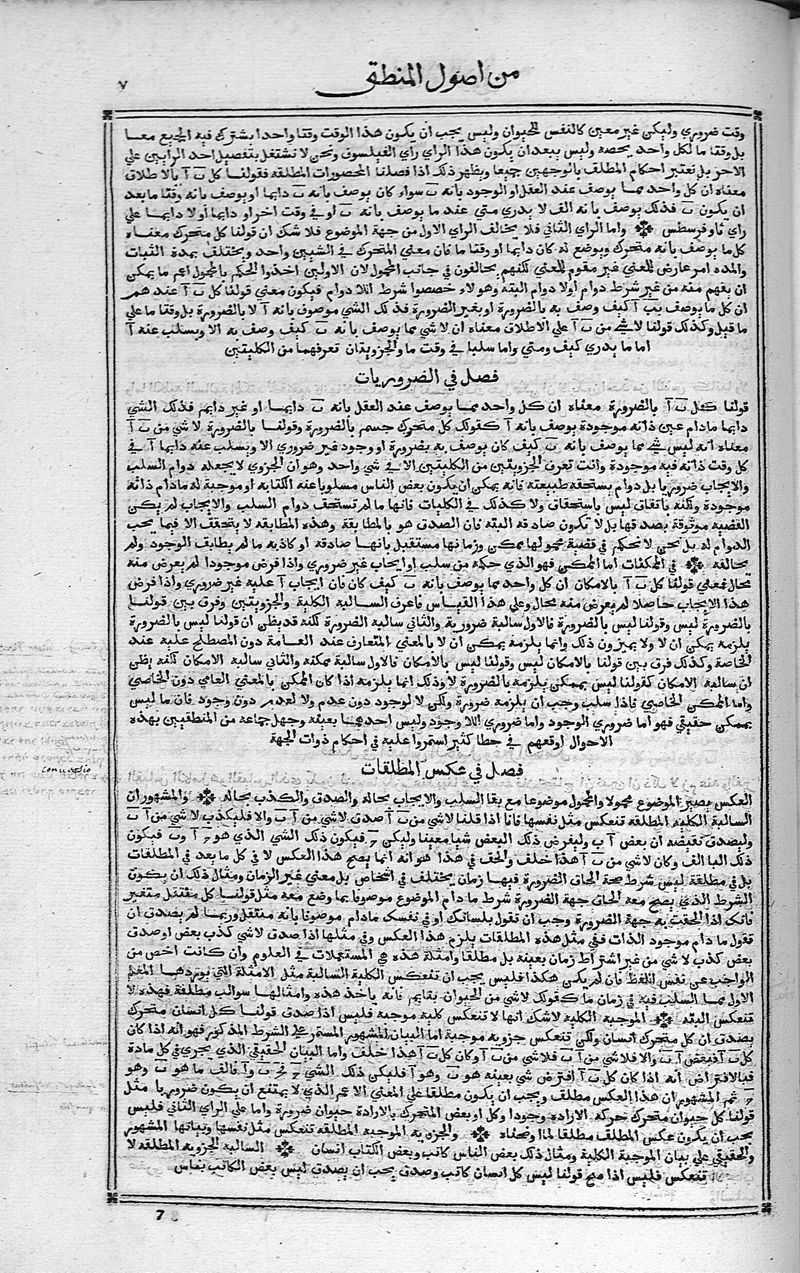 من اصول المنطق
٧
وقت ضروري وليكن غير معين كالنفس للحيوان وليس يجب ان يكون هذا الوقت وقتا واحدا يشترك فيه الجميع معا
بل وقتا ما لكل واحد يخصه وليس ببعد ان يكون هذا الراي راي الفيلسوف ونحن لا نشتغل بتفصيل احد الرايين علي
الاخر بل نعتبر احكام المطلف بالوجهين جميعا ويظهر ذلك اذا فصلنا المحصورات المطلقه فقولنا كل ب آ بالاطلاق
معناه ان كل واحد مما يوصف عند العقل او الوجود بانه ب سواء كان يوصف بانه ب دايما او يوصف بانه وقتا ما بعد
ان يكون ب فذلك يوصف بانه الف لا يدري متي عند ما يوصف بانه ب او في وقت اخر او دايما او لا دايما علي
راي ثاوفرسطس واما الراي الثاني فلا يخالف الراي الاول من جهة الموضوع فلا شك ان قولنا كل متحرك معناه
كل ما يوصف بانه متحرك ويوضع له كان دايما او وقتا ما فان معني المتحرك في الشيين واحد ويختلف بمده الثبات
والمده امر عارض للمعني غير مقوم للمعني لكنهم يخالفون في جانب المحمول لان الاولين اخذوا الحكم بالمحمول اعم ما يمكن
ان يفهم منه من غير شرط دوام او لا دوام البته وهولاء خصصوا شرط اللا دوام فيكون معني قولنا كل ب آ عند هم
ان كل ما يوصف بب آ كيف وصف به بالضرورة او بغير الضرورة فذلك الشي موصوف بانه آ لا بالضرورة بل وقتا ما علي
ما قيل وكذلك قولنا لا شي من ب آ علي الاطلاق معناه ان لا شي مما يوصف بانه ب كيف وصف به الا ويسلب عنه آ
اما ما يدري كيف ومتي واما سلبا في وقت ما والجزويتان تعرفهما من الكليتين
فصل في الضروريات
قولنا كل ب آ بالضرورة معناه ان كل واحد مما يوصف عند العقل بانه ب دايما او غير دايم فذلك الشي
دايما مادام عين ذاته موجودة يوصف بانه آ كقولك كل متحرك جسم بالضرورة وقولنا بالضرورة لا شي من ب آ
معناه انه ليس شي مما يوصف بانه ب كيف كان يوصف به بضرورة او وجود غير ضروري الا ويسلب عنه دايما آ في
كل وقت ذاته فيه موجودة وانت تعرف الجزويتين من الكليتين الا في شي واحد وهو ان الجزوي لا يجعله دوام السلب
والايجاب ضروريا بل دوام يستحقه طبيعته فانه يمكن ان يكون بعض الناس مسلوبا عنه الكتابه او موجبة له مادام ذاته
موجودة ولكنه باتفاق ليس باستحقاق ولا كذلك في الكليات فانها ما لم تستحف دوام السلب والايجاب لم يكن
القضيه موثوقة بصدقها بل لا تكون صادقه البته فان الصدق هو بالمطابقة وهذه المطابقه لا يتحقف الا فيما يجب
الدوام له بل نحن لا نحكم في قضية محمولها ممكن وزمانها مستقبل بانها صادقه او كاذبه ما لم يطابف الوجود ولم
يخالفه في الممكنات اما الممكن فهو الذي حكمه من سلب او ايجاب غير ضروري واذا فرض موجودا لم يعرض منه
محال فمعني قولنا كل ب آ بالامكان ان كل واحد مما يوصف بانه ب كيف كان فان ايجاب آ عليه غير ضروري واذا فرض
هذا الايجاب حاصلا لم يعرض منه محال وعلي هذا القياس فاعرف السالبه الكلية والجزويتين وفرق بين قولنا
بالضرورة ليس وقولنا ليس بالضرورة فالاول سالبة ضرورية والثاني سالبه الضرورة لكنه قد يظن ان قولنا ليس بالضرورة
يلزمه يمكن ان لا ولا يميزون ذلك وانما يلزمه يمكن ان لا بالمعني المتعارف عند العامة دون المصطلح عليه عند
الخاصة وكذلك فرق بين قولنا بالامكان ليس وقولنا ليس بالامكان فالاول سالبة ممكنه والثاني سالبه الامكان لكنه يظن
ان سالبه الامكان كقولنا ليس بممكن يلزمه بالضرورة لا وذلك انما يلزمه اذا كان الممكن بالمعني العامي دون الخاصي
واما الممكن الخاصي فاذا سلب وجب ان يلزمه ضرورة ولكن لا لوجود دون عدم ولا لعدم دون وجود فان ما ليس
بممكن حقيقي فهو اما ضروري الوجود واما ضروري اللا وجود وليس احدهما بعينه وجهل جماعه من المنطقيين بهذه
الاحوال اوقعهم في خطا كثير استمروا عليه في احكام ذوات الجهة
فصل في عكس المطلقات
العكس يصير الموضوع محمولا والمحمول موضوعا مع بقا السلب والايجاب بحاله والصدق والكذب بحاله والمشهور ان
السالبة الكليه المطلقه تنعكس مثل نفسها فانا اذا قلنا لا شي من ب آ صدق لا شي من آ ب والا فليكذب لا شي من آ ب
وليصدق نقيضه ان بعض آ ب وليفرض ذلك البعض شيا معينا وليكن ج فيكون ذلك الشي الذي هو ج آ وب فيكون
ذلك البا الف وكان لا شي من ب آ هذا خلف والحف في هذا هو انه انما يصح هذا العكس لا في كل ما يعد في المطلقات
بل في مطلقة ليس شرط صحة الحاق الضرورة فيها زمان يختلف في اشخاص بل معني غير الزمان ومثال ذلك ان يكون
الشرط الذي يصح معه الحاق جهة الضرورة شرط ما دام الموضوع موصوفا بما وضع معه مثل قولنا كل منتقل متغير
فانك اذا الحقت به جهة الضرورة وجب ان تقول بلسانك او في نفسك مادام موصوفا بانه منتقل وربما لم يصدق ان
تقول ما دام موجود الذات ففي مثل هذه المطلقات يلزم هذا العكس وفي مثلها اذا صدق لا شي كذب بعض او صدق
بعض كذب لا شي من غير اشتراط زمان بعينه بل مطلقا وامثلة هذه هي المستعملات في العلوم وان كانت اخص من
الواجب عن نفس اللفظ فان لم يكن هكذا فليس يجب ان تنعكس الكلية السالبة مثل الامثلة التي يوردها المعلم
الاول مما السلب فيه في زمان ما كقولك لا شي من الحيوان بقايم فانه ياخذ هذه وامثالها سوالب مطلقة فهذه لا
تنعكس البته الموجبة الكلية لا شك انها لا تنعكس كلية موجبه فليس اذا صدق قولنا كل انسان متحرك
يصدق ان كل متحرك انسان ولكن تنعكس جزويه موجبة اما البيان المشهور المستمر علي الشرط المذكور فهو انه اذا كان
كل ب آ فبعض آ ب والا فلا شي من آ ب فلا شي من ب آ وكان كل ب آ هذا خلف واما البيان الحقيقي الذي يجري في كل مادة
فبالافتراض انه اذا كان كل ب آ افترض شي بعينه هو ب وهو آ فليكن ذلك الشي ج فج ب وآ فالف ما هو ب وهو
ج ثم المشهور ان هذا العكس مطلف ويجب ان يكون مطلقا علي المعني الاعم الذي لا يمتنع ان يكون ضروريا مثل
قولنا كل حيوان متحرك حركه الارادة وجودا وكل او بعض المتحرك بالارادة حيوان ضرورة واما علي الراي الثاني فليس
يجب ان يكون عكس المطلف مطلقا لما اوضحناه والجزويه الموجبه المطلقه تنعكس مثل نفسها وتبيانها المشهور
والحقيقي علي بيان الموجبة الكلية ومثال ذلك بعض الناس كاتب وبعض الكتاب انسان السالبه الجزويه المطلقه لا
تنعكس فليس اذا صح قولنا ليس كل انسان كاتب وصدق يجب ان يصدق ليس بعض الكاتب بناس
conversio
7